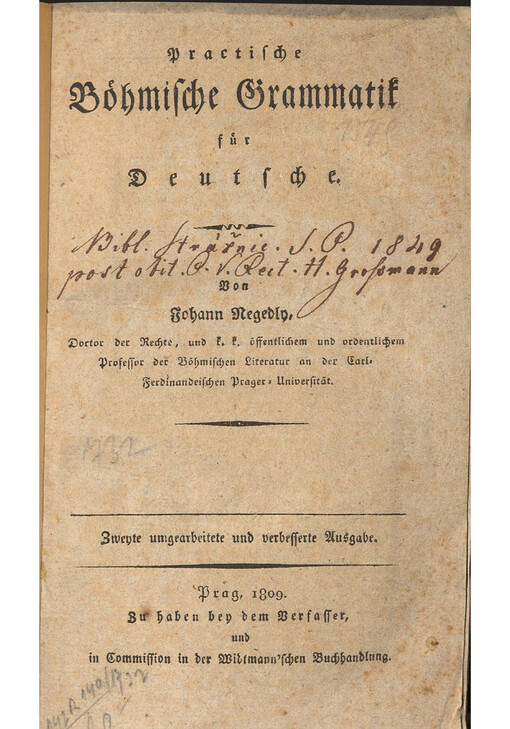 Practische
Böhmische Grammatik
für
Deutsche.
Bibl. Strážnic. S. P. 1849
post obit. P. V. Rect. H. Großmann
Von
Johann Negedly,
Doctor der Rechte, und k. k. öffentlichem und ordentlichem
Professor der Böhmischen Literatur an der Carl-
Ferdinandeischen Prager-Universität.
1732
Zweyte umgearbeitete und verbesserte Ausgabe.
Prag, 1809.
Zu haben bey dem Verfasser,
und
in Commission in der Widtmann'schen Buchhandlung.